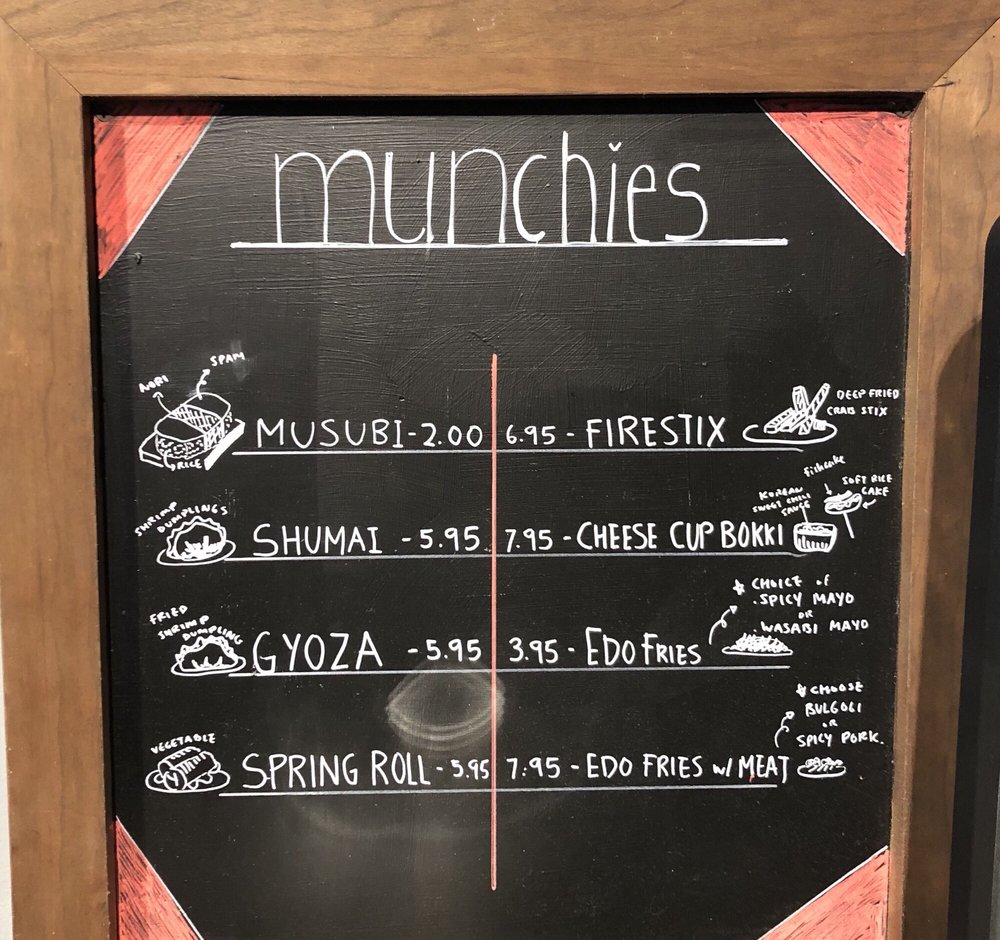 munchies
NORI
SPAM
RICE
MUSUBI-2.00
6.95 - FIRESTIX
DEEP FRIED
CRAB STIX
SHRIMP
DUMPLINGS
SHUMAI - 5.95
7.95 - CHEESE CUP BOKKI
KOREAN
SWEET CHILI
SAUCE
fishcake
SOFT RICE
CAKE
FRIED
SHRIMP
DUMPLING
GYOZA - 5.95
3.95 - EDO FRIES
* CHOICE of
SPICY MAYO
OR
WASABI MAYO
VEGETABLE
SPRING ROLL - 5.95
7.95 - EDO FRIES w/ MEAT
* CHOOSE
BULGOGI
OR
SPICY PORK.